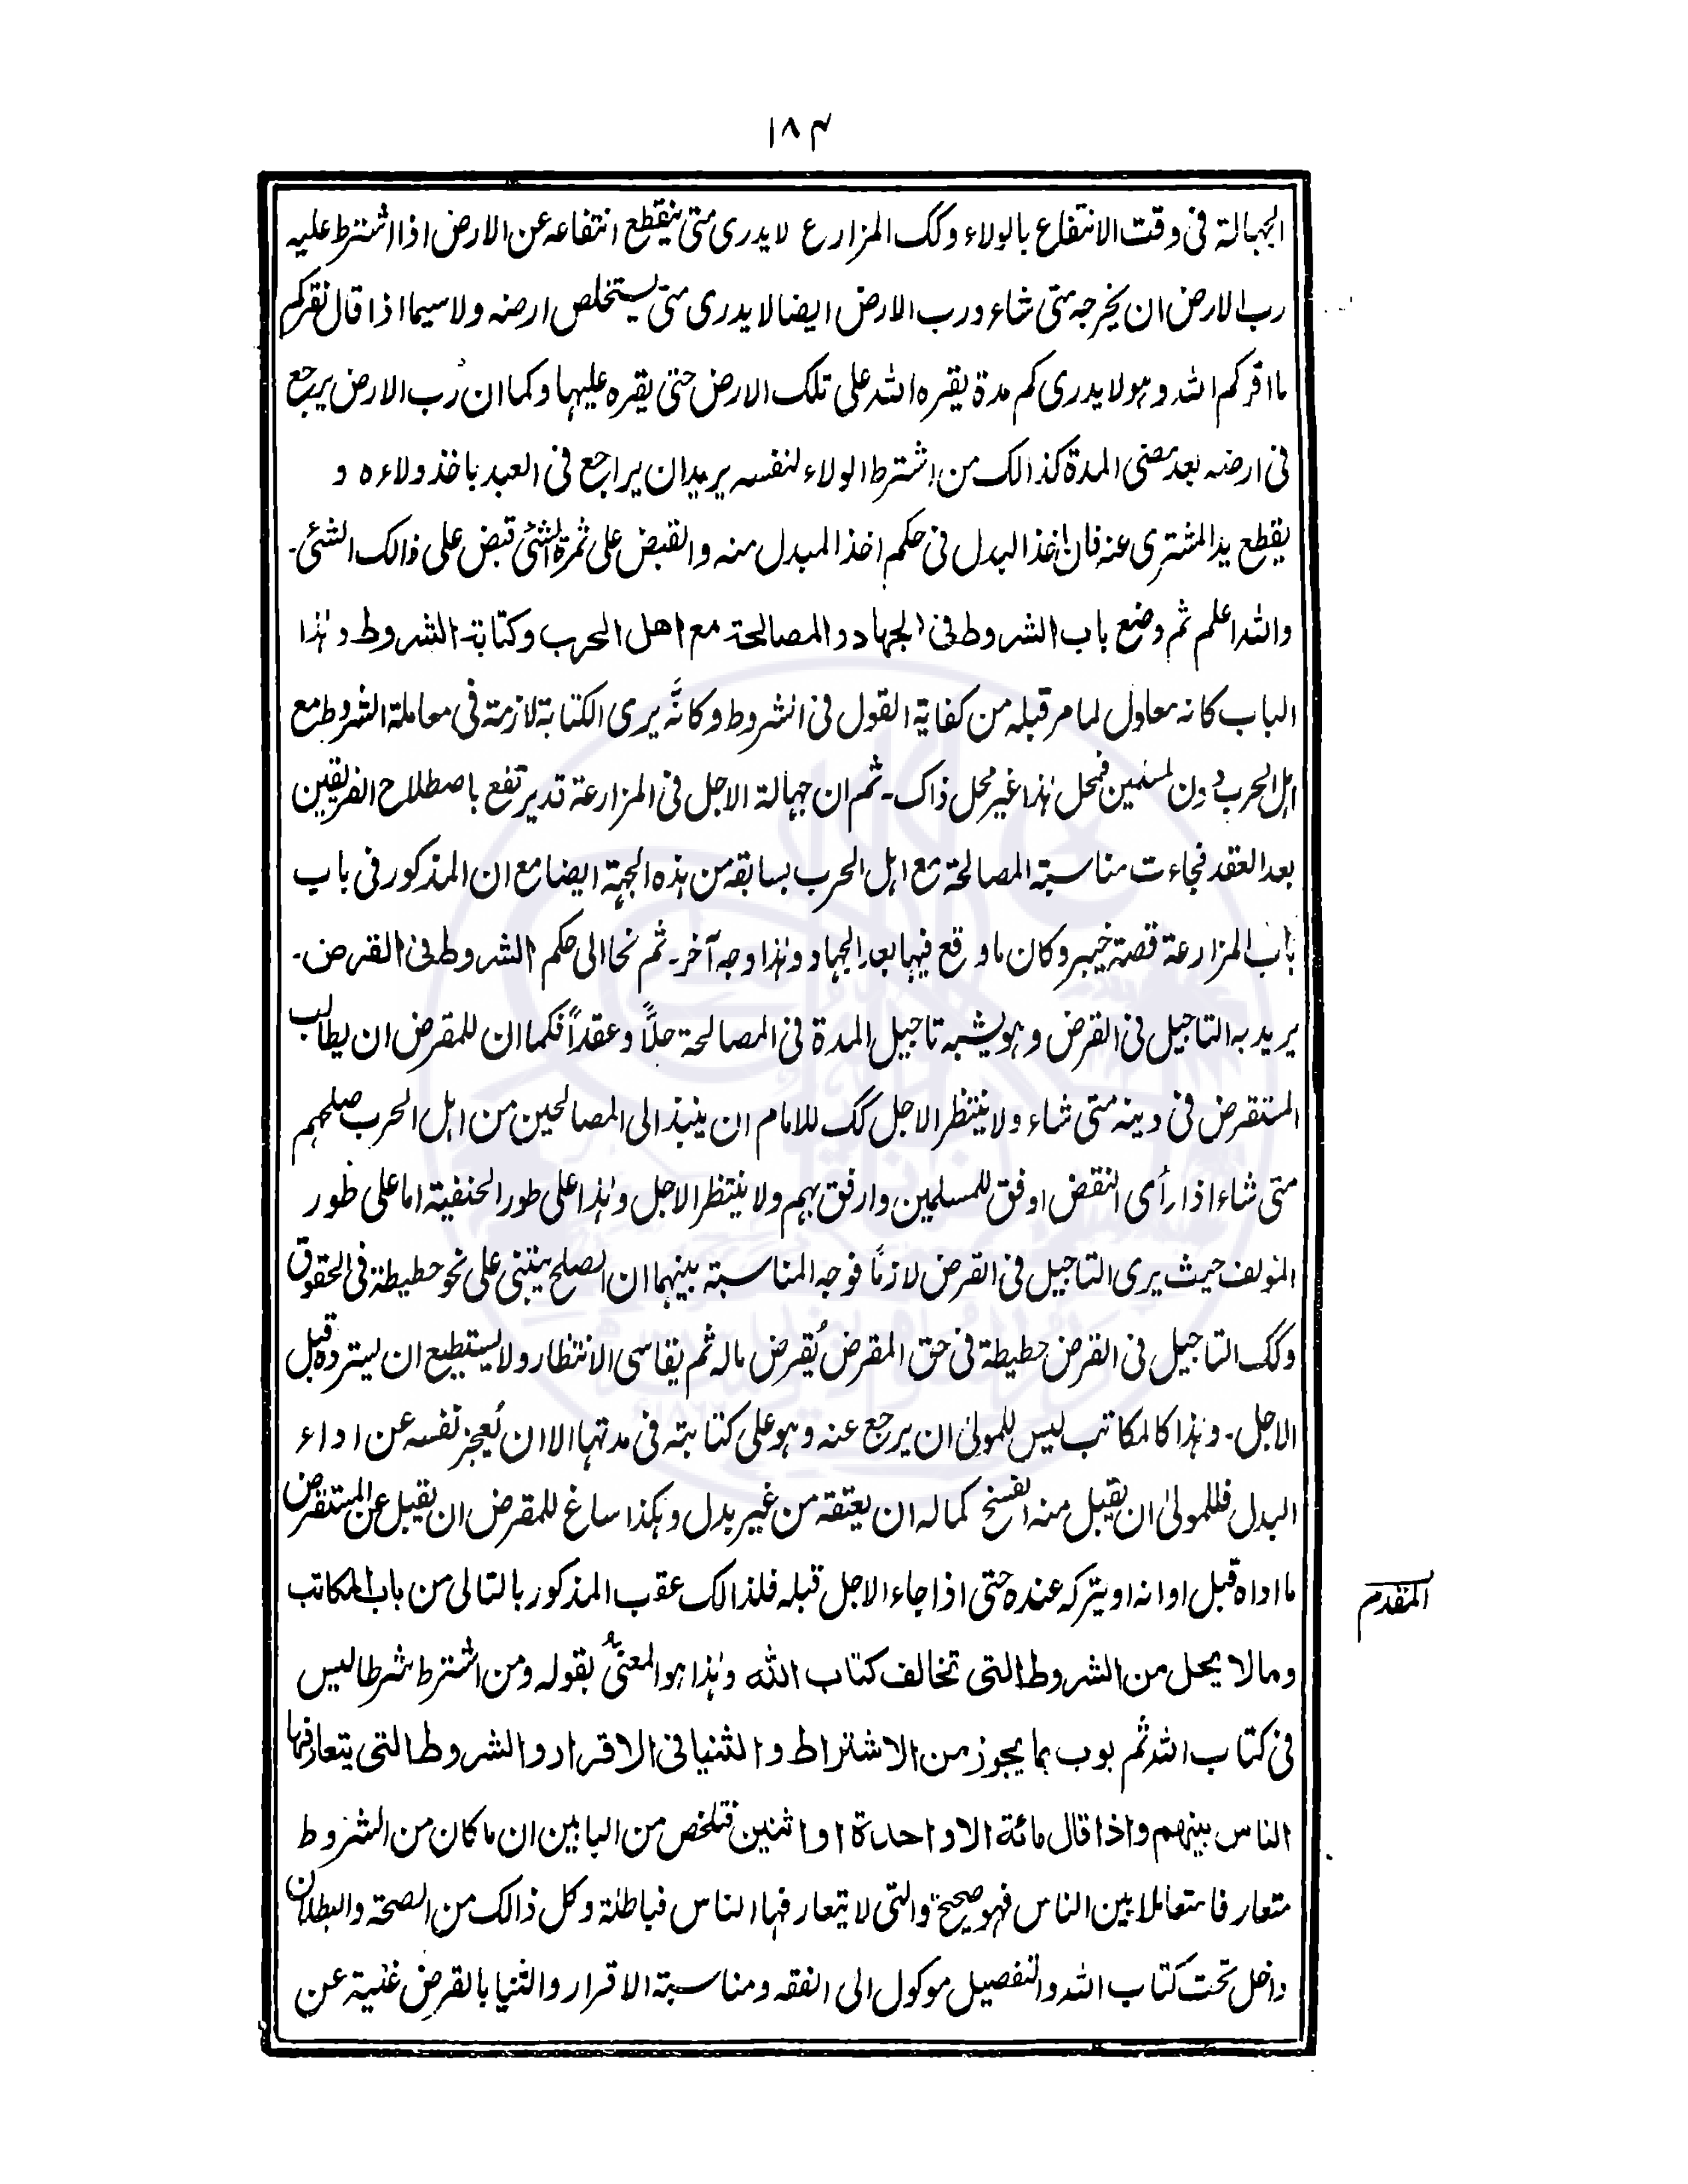 ۱۸۴
الجهالة فى وقت الانتفاع بالولاء وكك المزارع لا يدرى متى ينقطع انتفاعه عن الارض اذا اشترط عليه
رب الارض ان يخرجه متى شاء ورب الارض ايضا لا يدرى متى يستخلص ارضه ولا سيما اذا قال نقركم
ما اقركم الله وهو لا يدرى كم مدة يقره الله على تلك الارض حتى يقره عليها وكما ان رب الارض يرجع
فى ارضه بعد مضى المدة كذالك من اشترط الولاء لنفسه يريد ان يراجع فى العبد باخذ ولاءه و
يقطع يد المشترى عنه فان اخذ البدل فى حكم اخذ المبدل منه والقبض على ثمرة الشئ قبض على ذالك الشئ۔
والله اعلم ثم وضع باب الشروط فى الجهاد والمصالحة مع اهل الحرب وكتابة الشروط وهذا
الباب كانه معاول لما مر قبله من كفاية القول فى الشروط وكانَّه يرى الكتابة لازمة فى معاملة الشروط مع
اهل الحرب دون المسلمين فمحل هذا غير محل ذاك۔ ثم ان جهالة الاجل فى المزارعة قد يرتفع باصطلاح الفريقين
بعد العقد فجاءت مناسبة المصالحة مع اهل الحرب بسابقه من هذه الجهة ايضا مع ان المذكور فى باب
باب المزارعة قصة خيبر وكان ما وقع فيها بعد الجهاد وهذا وجه آخر۔ ثم نحا الى حكم الشروط فى القرض۔
يريد به التاجيل فى القرض وهو يشبه تاجيل المدة فى المصالحة حلّاً وعقداً فكما ان للمقرض ان يطالب
المستقرض فى دينه متى شاء ولا ينتظر الاجل كك للامام ان ينبذ الى المصالحين من اهل الحرب صلحهم
متى شاء اذا رأى النقض اوفق للمسلمين وارفق بهم ولا ينتظر الاجل وهذا على طور الحنفية اما على طور
المؤلف حيث يرى التاجيل فى القرض لازمًا فوجه المناسبة بينهما ان الصلح يبتنى على نحو حطيطة فى الحقوق
وكك التاجيل فى القرض حطيطة فى حق المقرض يُقرض ماله ثم يقاسى الانتظار ولا يستطيع ان يسترده قبل
الاجل۔ وهذا كالمكاتب ليس للمولىٰ ان يرجع عنه وهو على كتابته فى مدتها الا ان يُعجز نفسه عن اداء
البدل فللمولىٰ ان يقبل منه الفسخ كما له ان يعتقه من غير بدل وهكذا ساغ للمقرض ان يقبل عن المستقرض
ما اداه قبل اوانه او يتركه عنده حتى اذا جاء الاجل قبله فلذالك عقب المذكور بالتالى من باب المكاتب
المتقدم
وما لا يحل من الشروط التى تخالف كتاب الله وهذا هو المعنىُّ بقوله ومن اشترط شرطا ليس
فى كتاب الله ثم بوب بما يجوز من الاشتراط والثنيا فى الاقرار والشروط التى يتعارفها
الناس بينهم واذا قال مائة الا واحدة او اثنين فتلخص من البابين ان ما كان من الشروط
متعارفا متعاملا بين الناس فهو صحيح والتى لا يتعارفها الناس فباطلة وكل ذالك من الصحة والبطلان
داخل تحت كتاب الله والتفصيل موكول الى الفقه ومناسبة الاقرار والثنيا بالقرض غنية عن